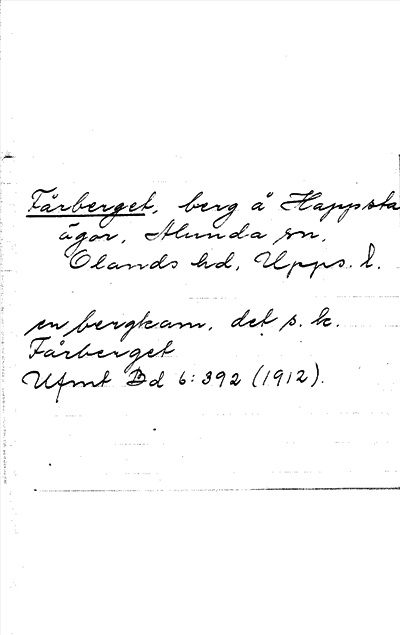 Fårberget, berg å Happsta
ägor, Alunda sn,
Olands hd, Upps. l.
en bergkam, det s. k.
Fårberget
Ufmt Bd 6:392 (1912).